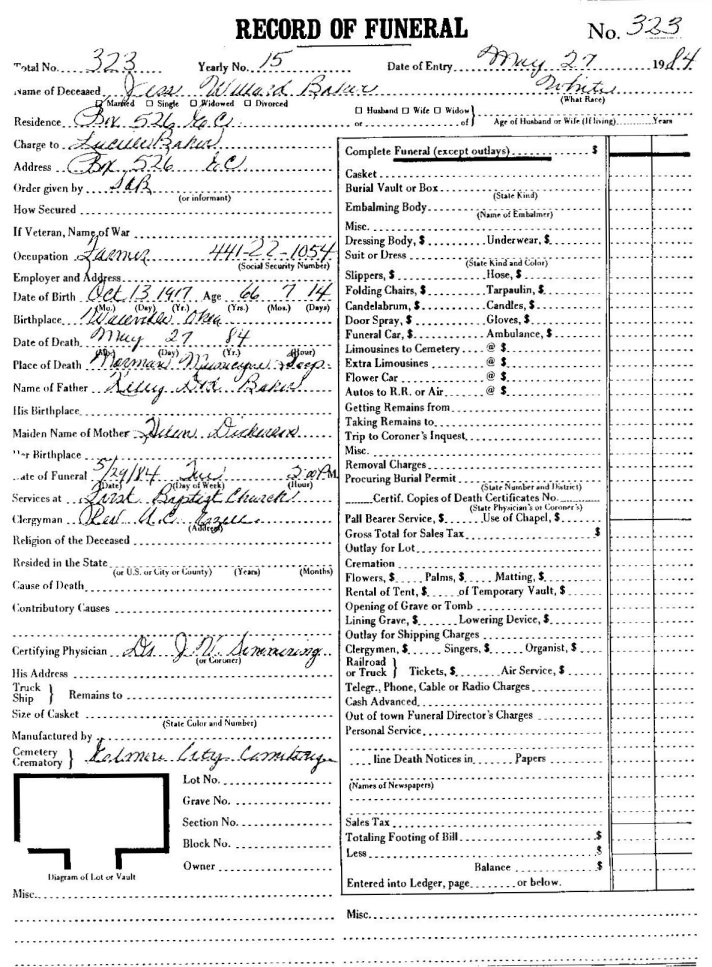 RECORD OF FUNERAL
No. 323
Total No. 323 Yearly No. 15 Date of Entry May 27 1984
Name of Deceased Jess Willard Baker White
(What Race)
☐ Married ☐ Single ☐ Widowed ☐ Divorced ☐ Husband ☐ Wife ☐ Widow } or of Age of Husband or Wife (If living) Years
Residence Box 526
Charge to Lucille Baker
Address Box 526
Order given by
(or informant)
How Secured
If Veteran, Name of War
Occupation Farmer 441-22-1054
(Social Security Number)
Employer and Address
Date of Birth Oct 13 1917 Age 66 7 14
(Mo.) (Day) (Yr.) (Yrs.) (Mos.) (Days)
Birthplace Okla
Date of Death May 27 84
(Mo.) (Day) (Yr.) (Hour)
Place of Death Norman Hosp.
Name of Father Baker
His Birthplace
Maiden Name of Mother
Her Birthplace
Date of Funeral 5/29/84 Tue 2:00 P.M.
(Date) (Day of Week) (Hour)
Services at First Baptist Church
Clergyman Rev
(Address)
Religion of the Deceased
Resided in the State
(or U.S. or City or County) (Years) (Months)
Cause of Death
Contributory Causes
Certifying Physician Dr J W
(or Coroner)
His Address
Truck } Ship } Remains to
Size of Casket
(State Color and Number)
Manufactured by
Cemetery } Crematory } City Cemetery
Lot No.
Grave No.
Section No.
Block No.
Owner
Diagram of Lot or Vault
Misc.
Complete Funeral (except outlays) $
Casket
Burial Vault or Box
(State Kind)
Embalming Body
(Name of Embalmer)
Misc.
Dressing Body, $ Underwear, $
Suit or Dress
(State Kind and Color)
Slippers, $ Hose, $
Folding Chairs, $ Tarpaulin, $
Candelabrum, $ Candles, $
Door Spray, $ Gloves, $
Funeral Car, $ Ambulance, $
Limousines to Cemetery @ $
Extra Limousines @ $
Flower Car @ $
Autos to R.R. or Air @ $
Getting Remains from
Taking Remains to
Trip to Coroner's Inquest
Misc.
Removal Charges
Procuring Burial Permit
(State Number and District)
Certif. Copies of Death Certificates No.
(State Physician's or Coroner's)
Pall Bearer Service, $ Use of Chapel, $
Gross Total for Sales Tax $
Outlay for Lot
Cremation
Flowers, $ Palms, $ Matting, $
Rental of Tent, $ of Temporary Vault, $
Opening of Grave or Tomb
Lining Grave, $ Lowering Device, $
Outlay for Shipping Charges
Clergymen, $ Singers, $ Organist, $
Railroad } or Truck } Tickets, $ Air Service, $
Telegr., Phone, Cable or Radio Charges
Cash Advanced
Out of town Funeral Director's Charges
Personal Service
line Death Notices in Papers
(Names of Newspapers)
Sales Tax
Totaling Footing of Bill $
Less $
Balance $
Entered into Ledger, page or below.
Misc.